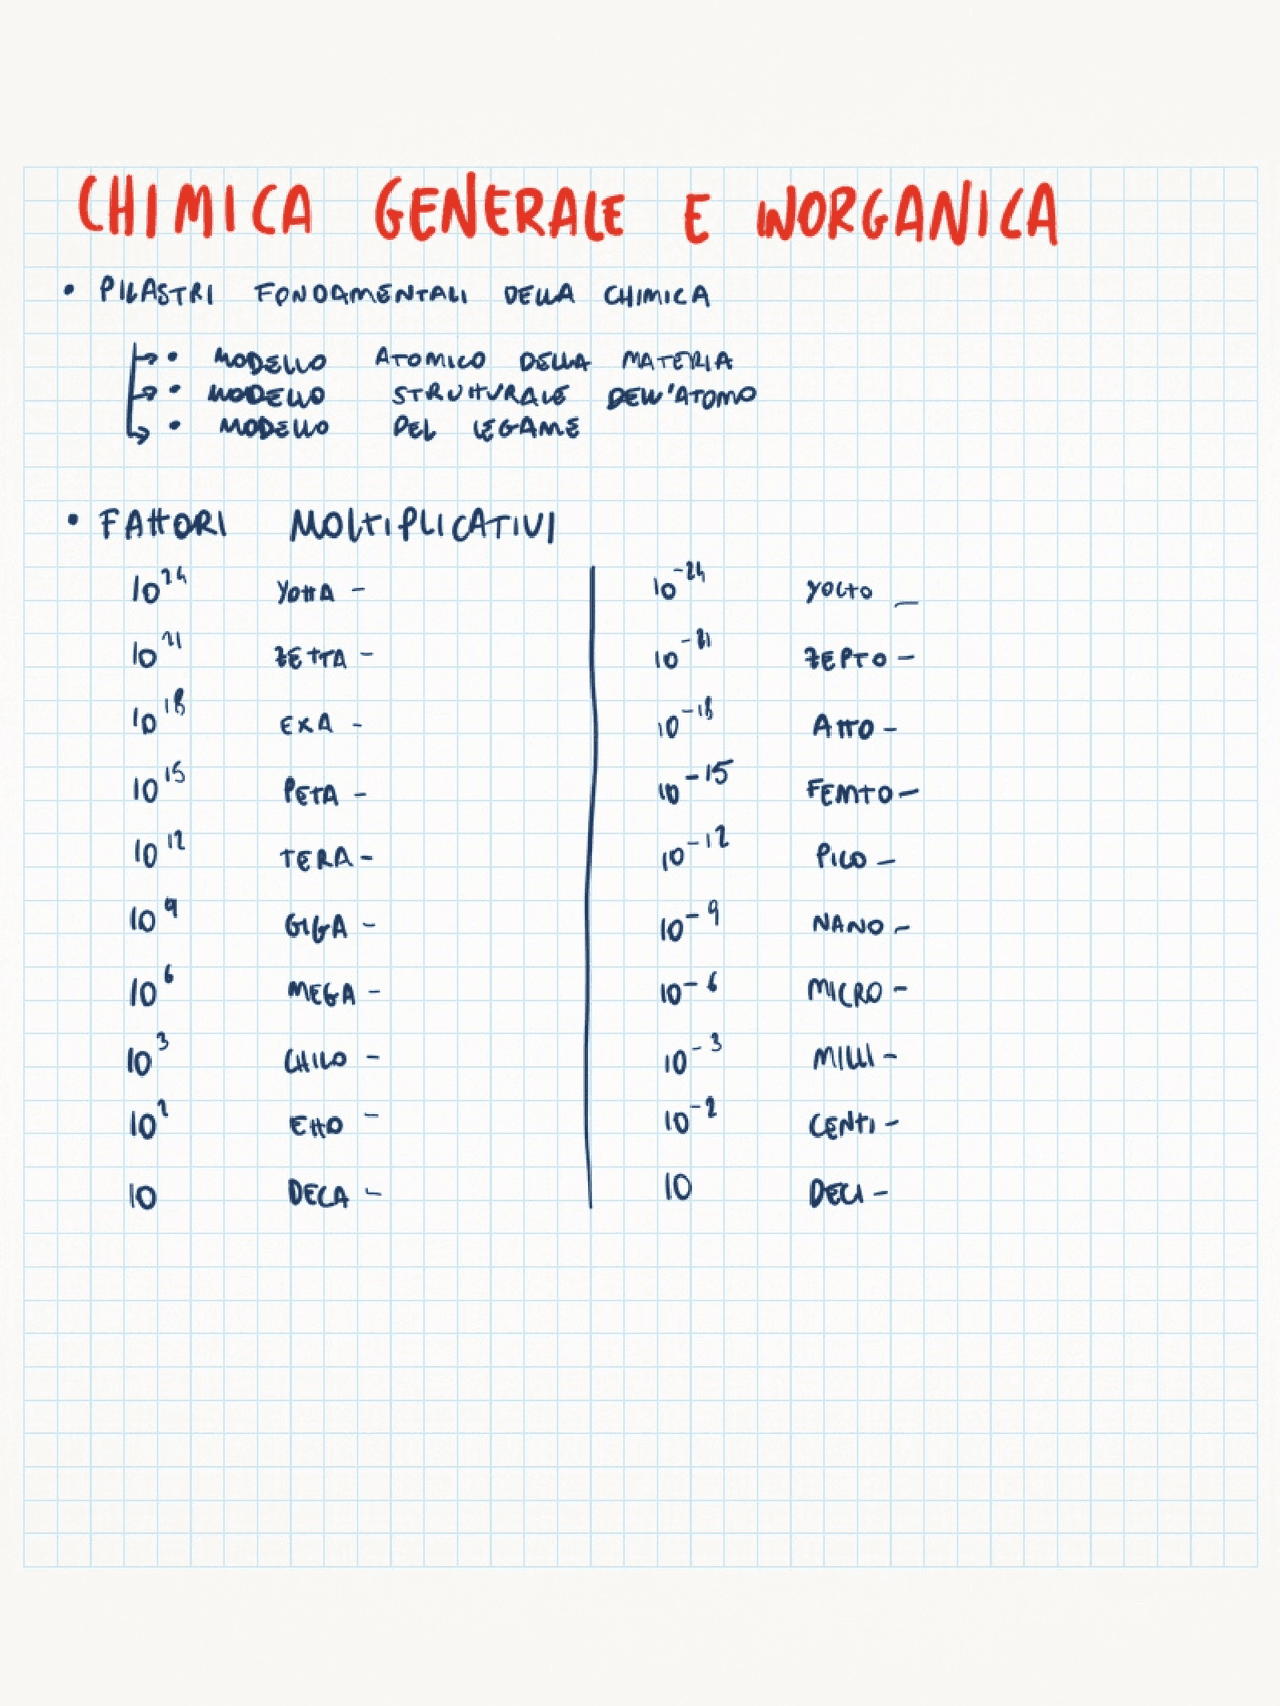 CHIMICA GENERALE E INORGANICA
• PILASTRI FONDAMENTALI DELLA CHIMICA
• MODELLO ATOMICO DELLA MATERIA
• MODELLO STRUTTURALE DELL'ATOMO
• MODELLO DEL LEGAME
• FATTORI MOLTIPLICATIVI
10²⁴ YOTTA - 10⁻²⁴ YOCTO _
10²¹ ZETTA - 10⁻²¹ ZEPTO -
10¹⁸ EXA - 10⁻¹⁸ ATTO -
10¹⁵ PETA - 10⁻¹⁵ FEMTO -
10¹² TERA - 10⁻¹² PICO -
10⁹ GIGA - 10⁻⁹ NANO -
10⁶ MEGA - 10⁻⁶ MICRO -
10³ CHILO - 10⁻³ MILLI -
10² ETTO - 10⁻² CENTI -
10 DECA - 10 DECI -